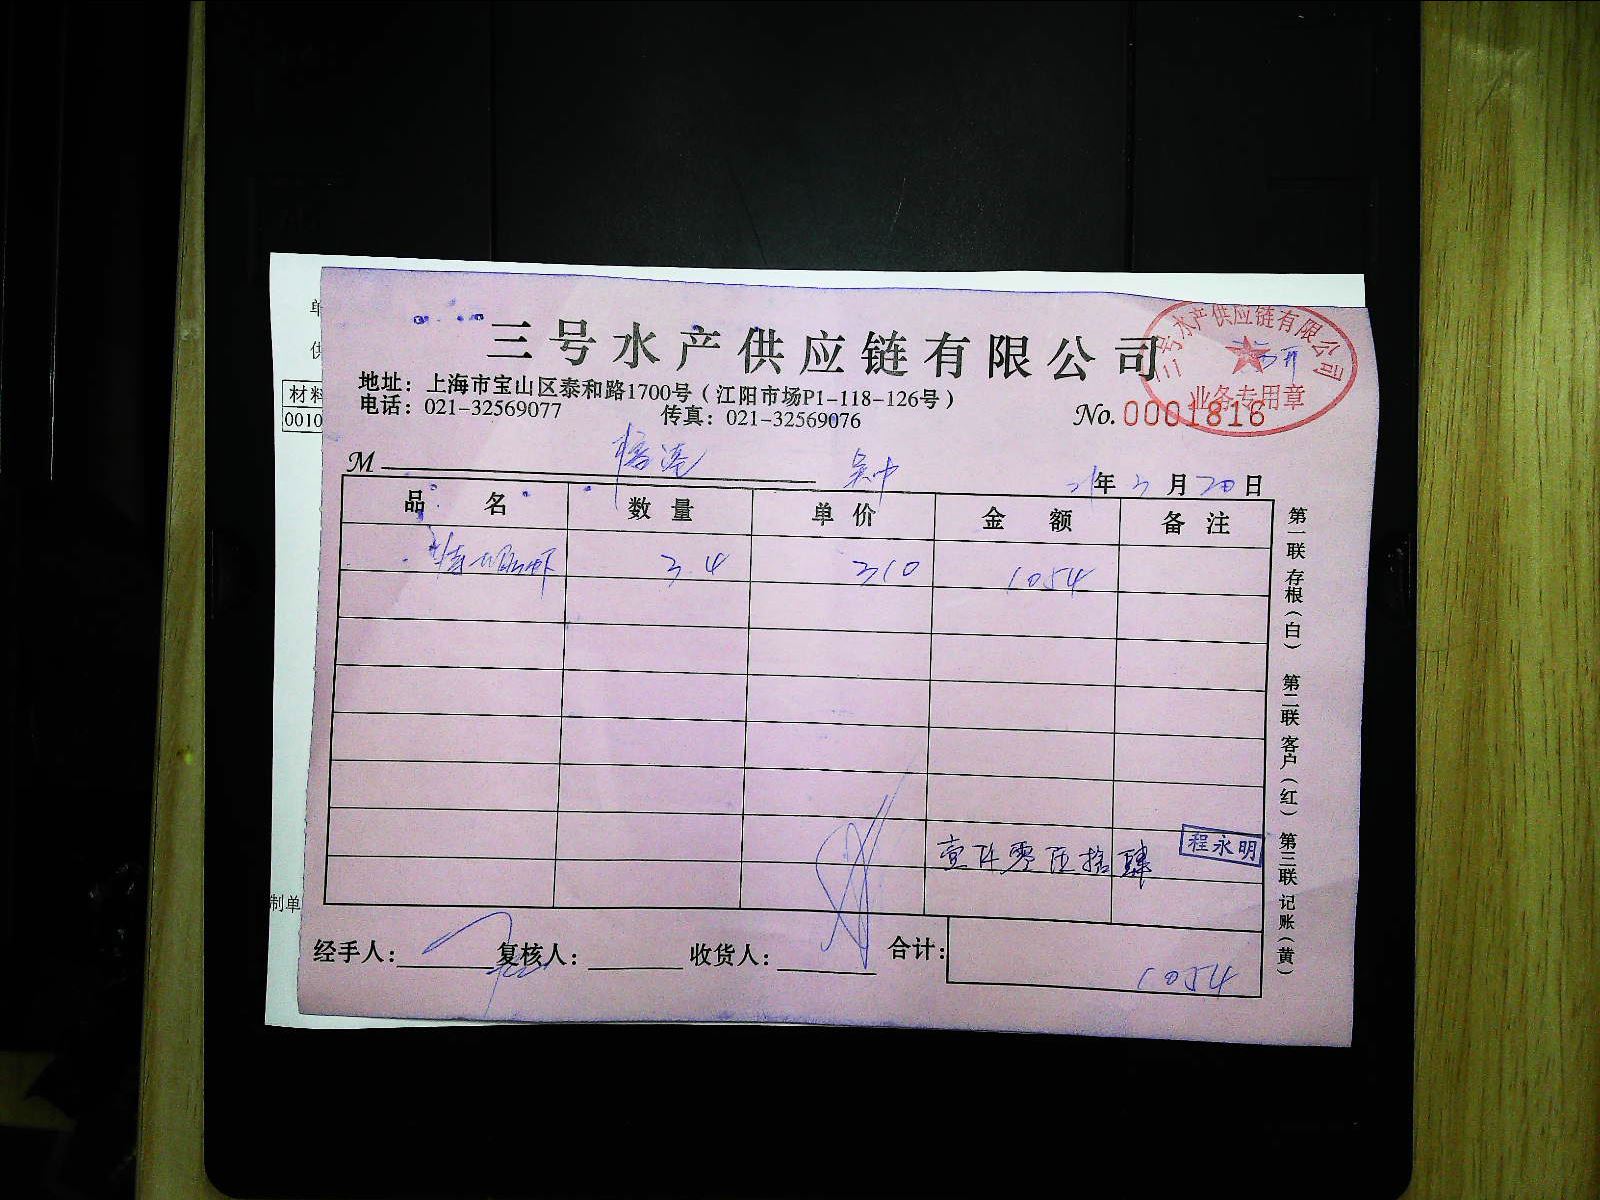 三号水产供应链有限公司
三号水产供应链有限公司
业务专用章
地址：上海市宝山区泰和路1700号（江阳市场P1-118-126号）
电话：021-32569077 传真：021-32569076
No. 0001816
M 吴中 21年3月20日
品名 数量 单价 金额 备注
3.4 310 1054
壹仟零伍拾肆
程永明
经手人： 复核人： 收货人： 合计：
1054
第一联 存根（白） 第二联 客户（红） 第三联 记账（黄）
单
供
材料
0010
制单